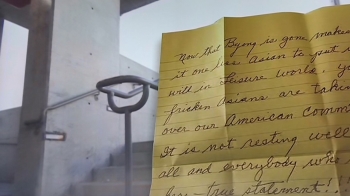 Now that Byong is gone makes
it one less Asian to put up
with in Leisure World. You
fricken Asians are taking
over our American Comm
It is not resting well
all and everybody who
true statement!!